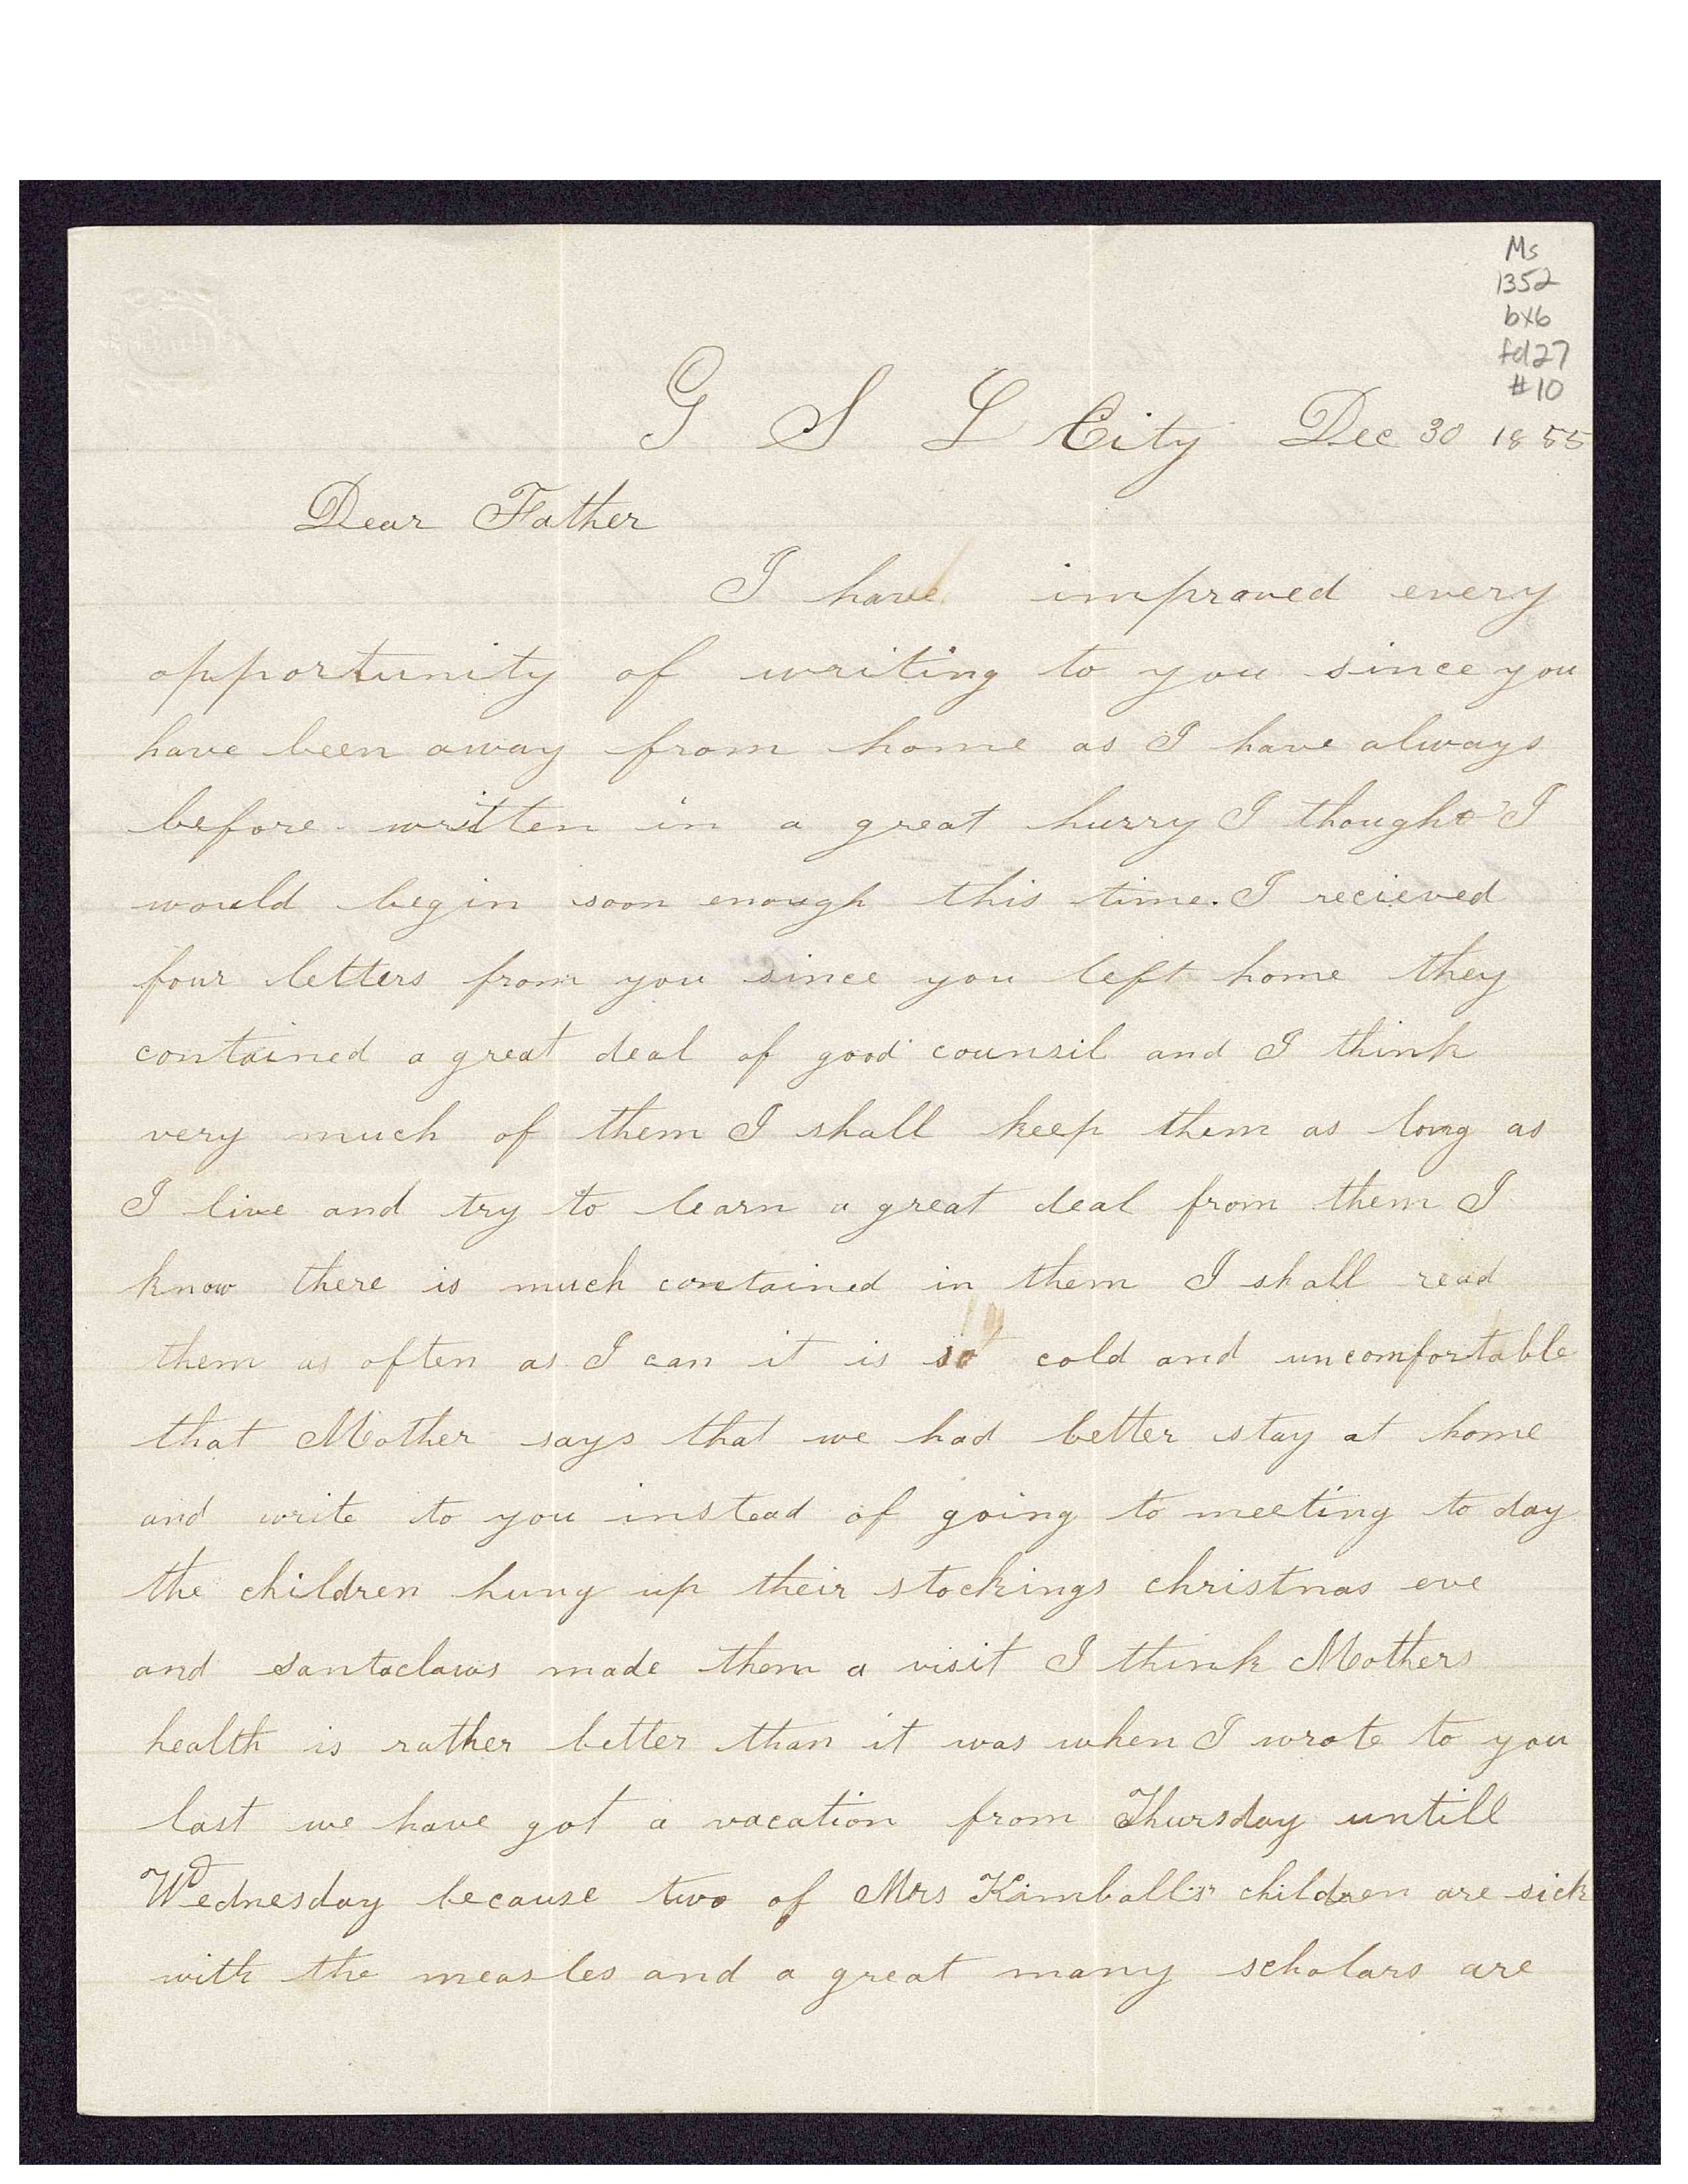 Ms
1352
bx6
fd27
#10
G S L City Dec 30 1855
Dear Father
I have improved every
opportunity of writing to you since you
have been away from home as I have always
before written in a great hurry I thought I
would begin soon enough this time. I recieved
four letters from you since you left home they
contained a great deal of good counsil and I think
very much of them I shall keep them as long as
I live and try to learn a great deal from them I
know there is much contained in them I shall read
them as often as I can it is so cold and uncomfortable
that Mother says that we had better stay at home
and write to you instead of going to meeting to day
the children hung up their stockings christmas eve
and santaclaws made them a visit I think Mothers
health is rather better than it was when I wrote to you
last we have got a vacation from Thursday untill
Wednesday because two of Mrs Kimball's children are sick
with the measles and a great many scholars are